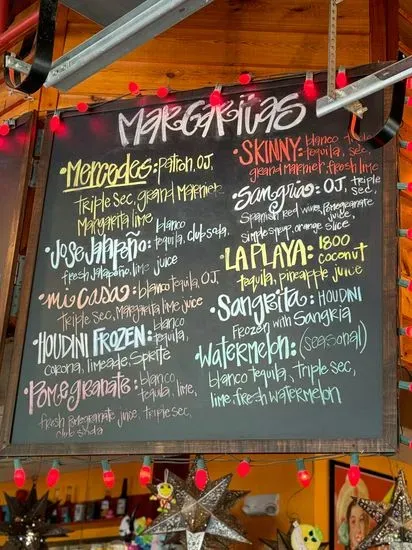 MARGARITAS
Mercedes: Patron, OJ,
triple sec, grand marnier
Margarita lime
Jose Jalapeño: blanco
tequila, club soda,
fresh Jalapeño, lime juice
mi casa: blanco tequila, OJ,
Triple sec, Margarita lime juice
HOUDINI FROZEN: blanco
tequila,
Corona, limeade, Sprite
Pomegranate: blanco
tequila, lime,
fresh pomegranate juice, triple sec,
club soda
SKINNY: blanco
tequila, sec,
grand marnier, fresh lime
Sangria: OJ, triple
sec,
Spanish red wine, pomegranate
juice,
simple syrup, orange slice
LA PLAYA: 1800
coconut
tequila, pineapple juice
Sangrita: HOUDINI
Frozen with Sangria
Watermelon: (seasonal)
blanco tequila, triple sec,
lime, fresh watermelon